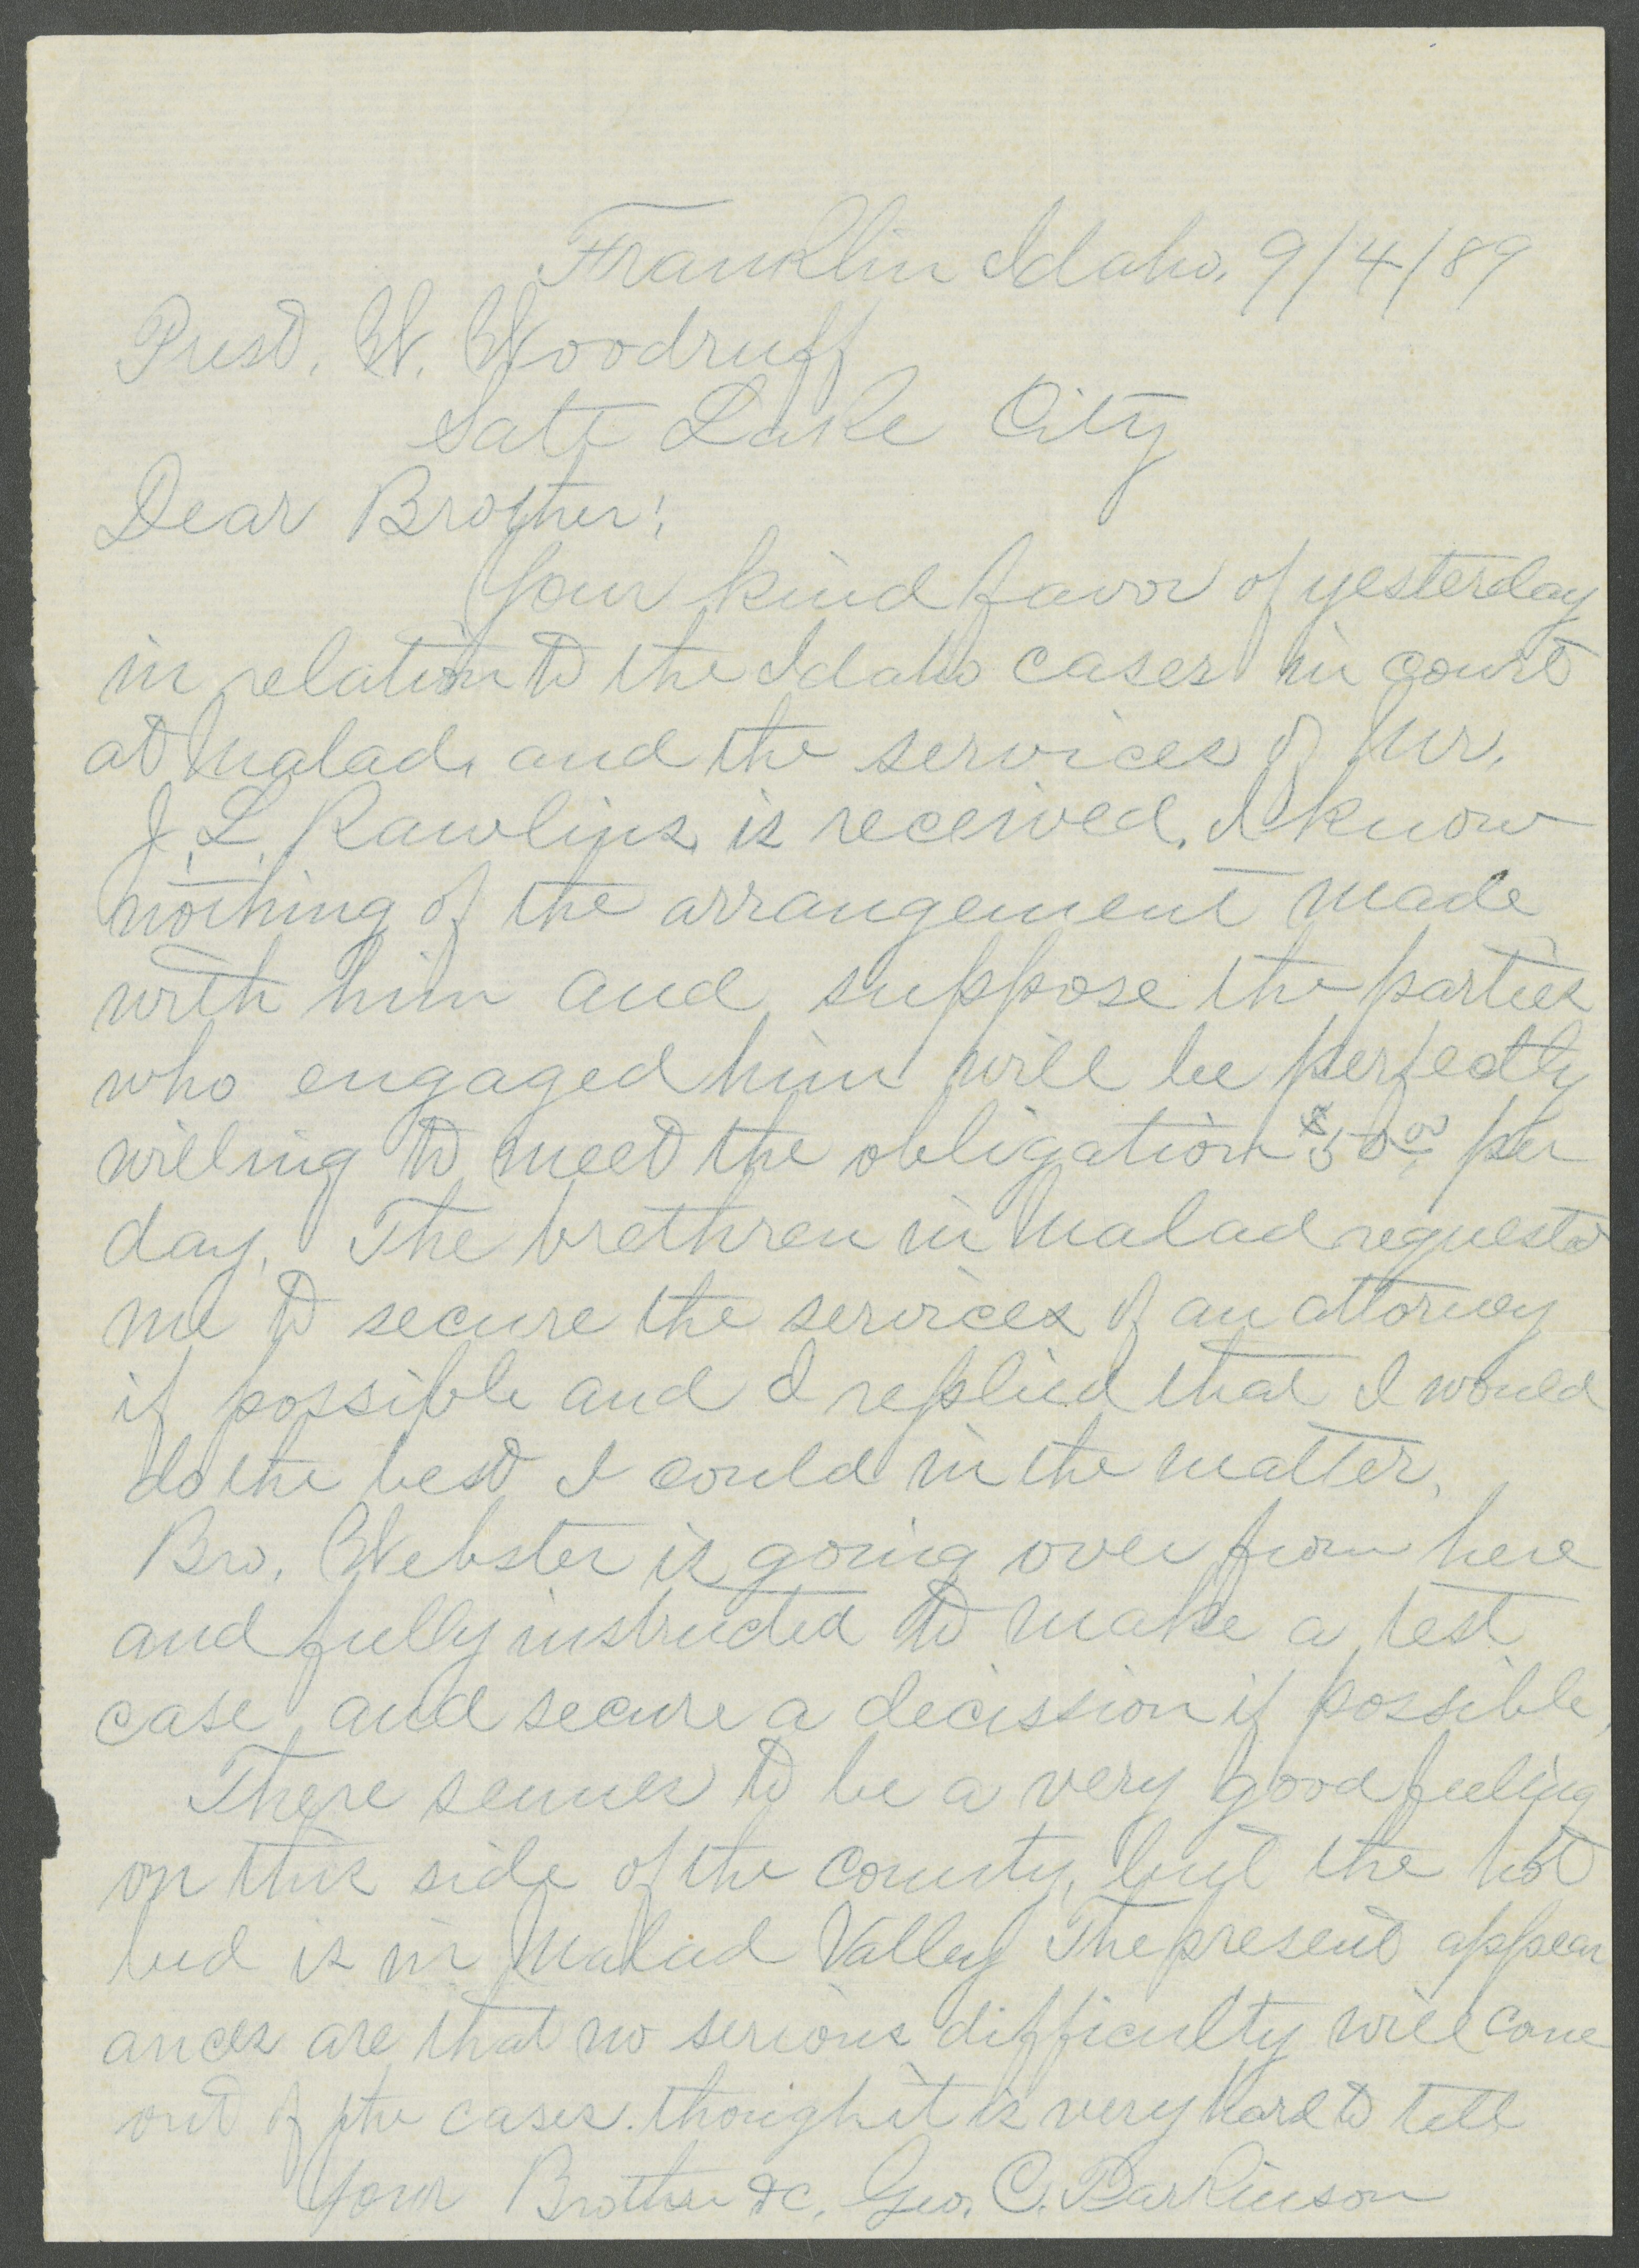 Franklin Idaho, 9/4/89
Prest. W. Woodruff
Salt Lake City
Dear Brother:
Your kind favor of yesterday
in relation to the Idaho cases in court
at Malad, and the services of Mr.
J. L. Rawlins, is received. I know
nothing of the arrangement made
with him and suppose the parties
who engaged him will be perfectly
willing to meet the obligation $50.00 per
day. The brethren in Malad requested
me to secure the services of an attorney
if possible and I replied that I would
do the best I could in the matter.
Bro. Webster is going over from here
and fully instructed to make a test
case and secure a decission if possible.
There seemes to be a very good feeling
on this side of the county, but the hot
bed is in Malad Valley The present appear
ances are that no serious difficulty will come
out of the cases. though it is very hard to tell
Your Brother &c, Geo. C. Parkinson